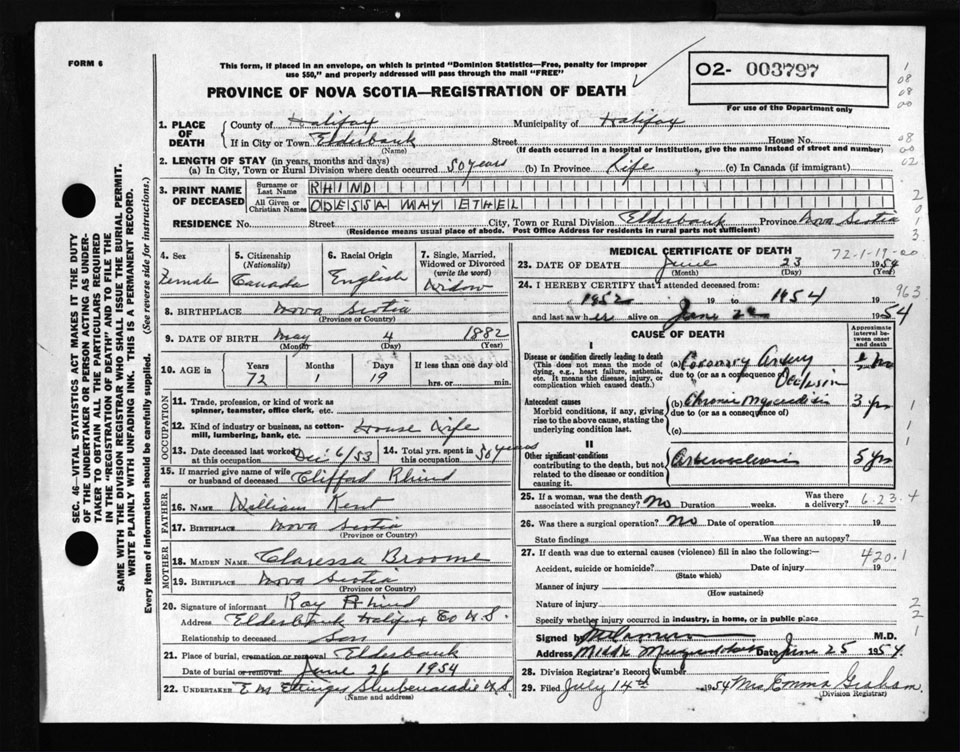 FORM 6
This form, if placed in an envelope, on which is printed "Dominion Statistics—Free, penalty for improper
use $50," and properly addressed will pass through the mail "FREE"
02- 003797
PROVINCE OF NOVA SCOTIA—REGISTRATION OF DEATH
For use of the Department only
1. PLACE OF DEATH
County of Halifax Municipality of Halifax
If in City or Town Elderbank Street House No.
(Name) (If death occurred in a hospital or institution, give the name instead of street and number)
2. LENGTH OF STAY (in years, months and days)
(a) In City, Town or Rural Division where death occurred 50 years (b) In Province Life (c) In Canada (if immigrant)
3. PRINT NAME OF DECEASED
Surname or Last Name RHIND
All Given or Christian Names ODESSA MAY ETHEL
RESIDENCE No. Street City, Town or Rural Division Elderbank Province Nova Scotia
(Residence means usual place of abode. Post Office Address for residents in rural parts not sufficient)
4. Sex Female
5. Citizenship (Nationality) Canada
6. Racial Origin English
7. Single, Married, Widowed or Divorced (write the word) Widow
8. BIRTHPLACE Nova Scotia
(Province or Country)
9. DATE OF BIRTH May 4 1882
(Month) (Day) (Year)
10. AGE in Years Months Days If less than one day old
72 1 19 hrs. or min.
OCCUPATION
11. Trade, profession, or kind of work as
spinner, teamster, office clerk, etc.
12. Kind of industry or business, as cotton-
mill, lumbering, bank, etc. House Wife
13. Date deceased last worked at this occupation Dec 6/53 14. Total yrs. spent in this occupation 50 years
15. If married give name of wife
or husband of deceased Clifford Rhind
FATHER
16. NAME William Kent
17. BIRTHPLACE Nova Scotia
(Province or Country)
MOTHER
18. MAIDEN NAME Claressa Broome
19. BIRTHPLACE Nova Scotia
(Province or Country)
20. Signature of informant Ray Rhind
Address Elderbank Halifax Co N.S.
Relationship to deceased Son
21. Place of burial, cremation or removal Elderbank
Date of burial or removal June 26 1954
22. UNDERTAKER E M Shubenacadie N.S
(Name and address)
MEDICAL CERTIFICATE OF DEATH
72-1-19-00
23. DATE OF DEATH June 23 1954
(Month) (Day) (Year)
24. I HEREBY CERTIFY that I attended deceased from:
1952 19 to 1954 19
963
and last saw her alive on June 1954
CAUSE OF DEATH
Approximate interval between onset and death
I
Disease or condition directly leading to death
(This does not mean the mode of dying, e.g., heart failure, asthenia, etc. It means the disease, injury, or complication which caused death.)
(a) Coronary Artery Occlusion
due to (or as a consequence of)
Antecedent causes
Morbid conditions, if any, giving rise to the above cause, stating the underlying condition last.
(b) Chronic Myocarditis 3 yrs
due to (or as a consequence of)
(c)
II
Other significant conditions
contributing to the death, but not related to the disease or condition causing it.
5 yrs
25. If a woman, was the death associated with pregnancy? No Duration weeks. Was there a delivery?
6.23.4
26. Was there a surgical operation? No Date of operation 19
State findings Was there an autopsy?
27. If death was due to external causes (violence) fill in also the following:
420.1
Accident, suicide or homicide? Date of injury 19
(State which)
Manner of injury
(How sustained)
Nature of injury
Specify whether injury occurred in industry, in home, or in public place
Signed by M.D.
Address Middle Musquodoboit Date June 25 1954
28. Division Registrar's Record Number
29. Filed July 14th 1954 Mrs Emma Graham
(Division Registrar)
SEC. 46—VITAL STATISTICS ACT MAKES IT THE DUTY
OF THE UNDERTAKER OR PERSON ACTING AS UNDER-
TAKER TO OBTAIN ALL THE PARTICULARS REQUIRED
IN THE "REGISTRATION OF DEATH" AND TO FILE THE
SAME WITH THE DIVISION REGISTRAR WHO SHALL ISSUE THE BURIAL PERMIT.
WRITE PLAINLY WITH UNFADING INK. THIS IS A PERMANENT RECORD.
Every item of information should be carefully supplied. (See reverse side for instructions.)